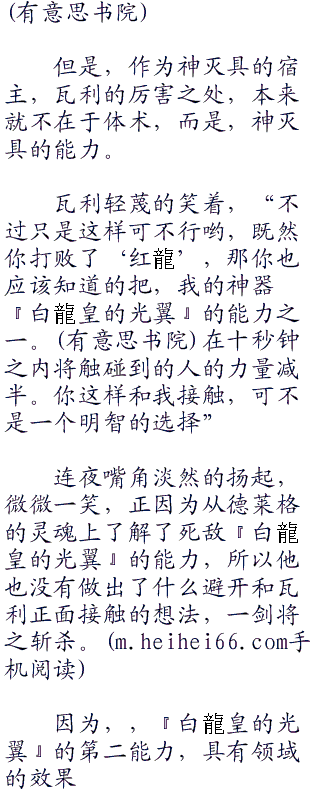 (有意思书院)
但是，作为神灭具的宿
主，瓦利的厉害之处，本来
就不在于体术，而是，神灭
具的能力。
瓦利轻蔑的笑着，“不
过只是这样可不行哟，既然
你打败了‘红龍’，那你也
应该知道的把，我的神器
『白龍皇的光翼』的能力之
一。(有意思书院)在十秒钟
之内将触碰到的人的力量减
半。你这样和我接触，可不
是一个明智的选择”
连夜嘴角淡然的扬起，
微微一笑，正因为从德莱格
的灵魂上了解了死敌『白龍
皇的光翼』的能力，所以他
也没有做出了什么避开和瓦
利正面接触的想法，一剑将
之斩杀。(m.heihei66.com手
机阅读)
因为，，『白龍皇的光
翼』的第二能力，具有领域
的效果